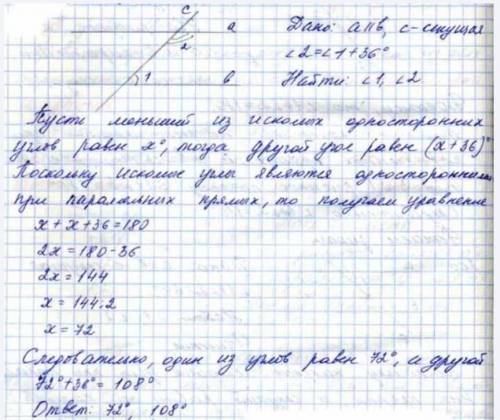 c
a
2
1
b
Дано: a||b, c-секущая
∠2=∠1+36°
Найти: ∠1, ∠2
Пусть меньший из искомых односторонних
углов равен x°, тогда другой угол равен (x+36)°
Поскольку искомые углы являются односторонними
при паралльных прямых, то получаем уравнение
x+x+36=180
2x=180-36
2x=144
x=144:2
x=72
Следовательно, один из углов равен 72°, а другой
72°+36°=108°
Ответ: 72°, 108°